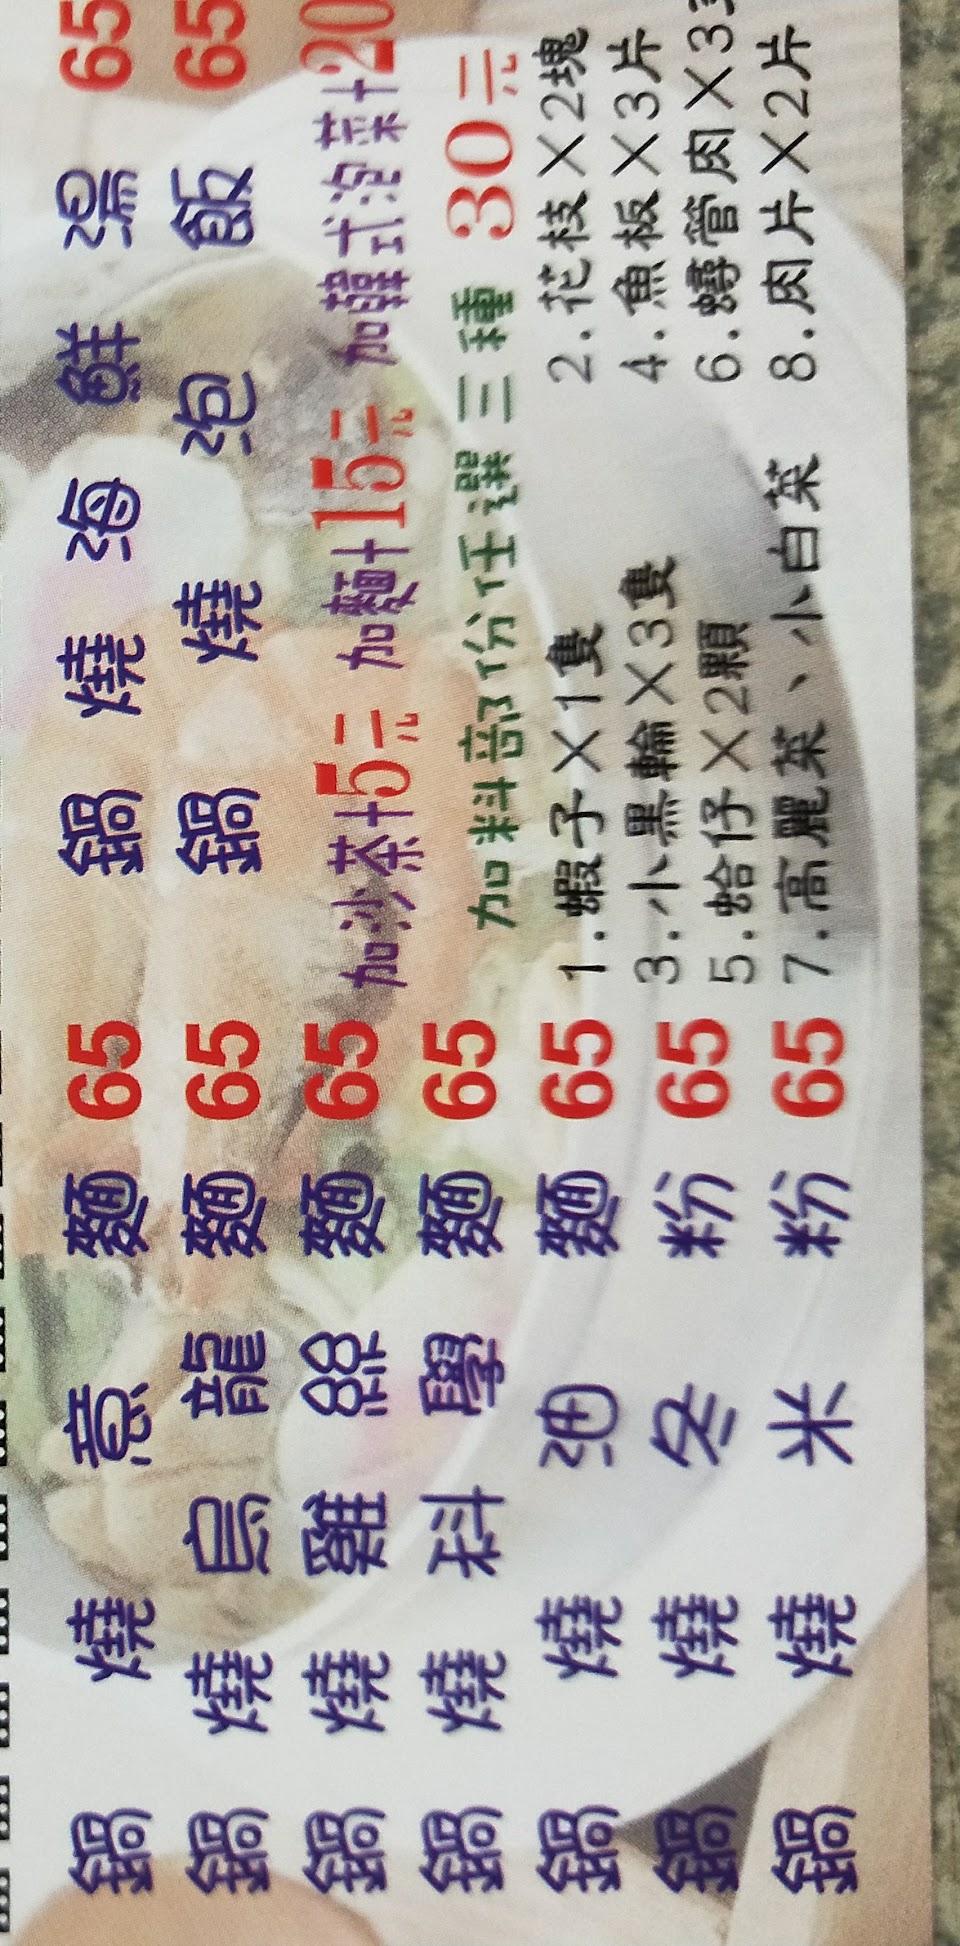 鍋燒意麵 65
鍋燒烏龍麵 65
鍋燒雞絲麵 65
鍋燒科學麵 65
鍋燒油麵 65
鍋燒冬粉 65
鍋燒米粉 65
鍋燒海鮮湯 65
鍋燒泡飯 65
加沙茶+5元 加麵+15元 加韓式泡菜+20
加料部份任選三種 30元
1.蝦子×1隻 2.花枝×2塊
3.小黑輪×3隻 4.魚板×3片
5.蛤仔×2顆 6.蟳管肉×3
7.高麗菜、小白菜 8.肉片×2片